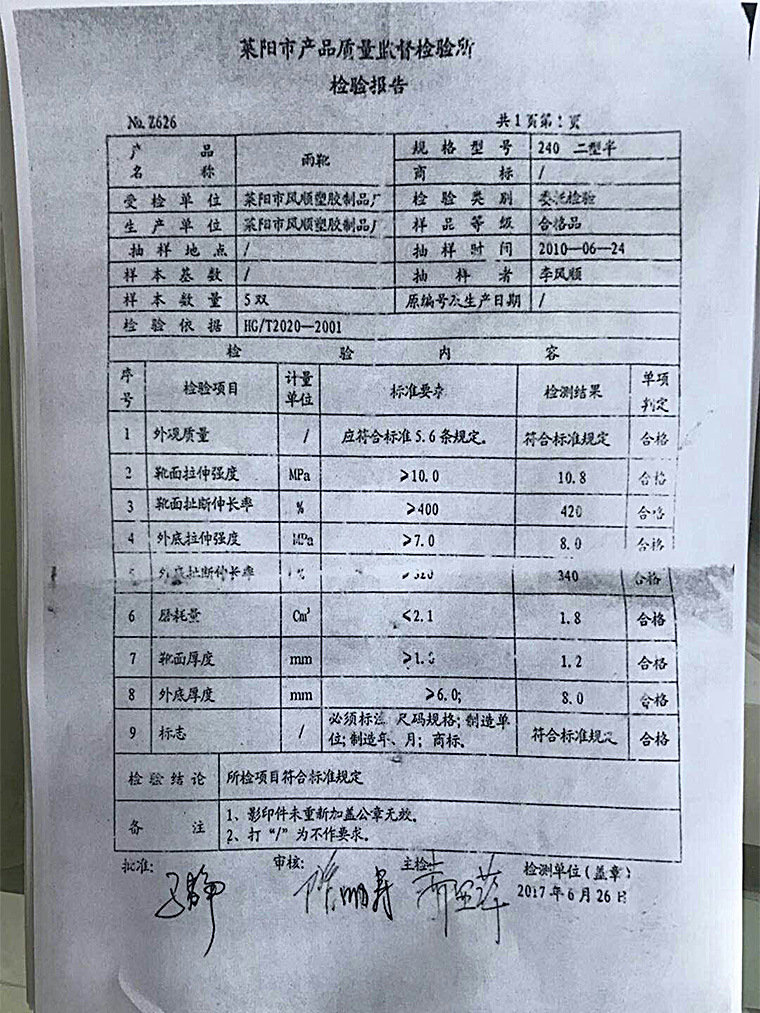 莱阳市产品质量监督检验所
检验报告
No. Z626 共1页第1页
产品名称 雨靴 规格型号 240 二型半
商标 /
受检单位 莱阳市风顺塑胶制品厂 检验类别 委托检验
生产单位 莱阳市风顺塑胶制品厂 样品等级 合格品
抽样地点 / 抽样时间 2010—06—24
样本基数 / 抽样者 李风顺
样本数量 5双 原编号及生产日期 /
检验依据 HG/T2020—2001
检验内容
序号 检验项目 计量单位 标准要求 检测结果 单项判定
1 外观质量 / 应符合标准5.6条规定。 符合标准规定 合格
2 靴面拉伸强度 MPa ≥10.0 10.8 合格
3 靴面扯断伸长率 % ≥400 420 合格
4 外底拉伸强度 MPa ≥7.0 8.0 合格
5 外底扯断伸长率 % 340 合格
6 磨耗量 Cm³ ≤2.1 1.8 合格
7 靴面厚度 mm 1.2 合格
8 外底厚度 mm ≥6.0; 8.0 合格
9 标志 / 必须标注 尺码规格;制造单
位;制造年、月; 商标。 符合标准规定 合格
检验结论 所检项目符合标准规定
备注 1、影印件未重新加盖公章无效。
2、打“/”为不作要求。
批准: 审核: 主检: 检测单位(盖章)
2017年6月26日